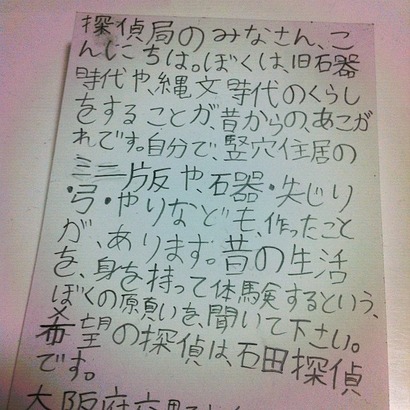 探偵局のみなさん、こ
んにちは。ぼくは、旧石器
時代や、縄文時代のくらし
をすることが、昔からの、あこが
れです。自分で、竪穴住居の
ミニ版や、石器・矢じり
・弓・やりなども、作ったこと
が、あります。昔の生活
を、身を持って体験するという、
ぼくの願いを聞いて下さい。
希望の探偵は、石田探偵
です。
大阪府